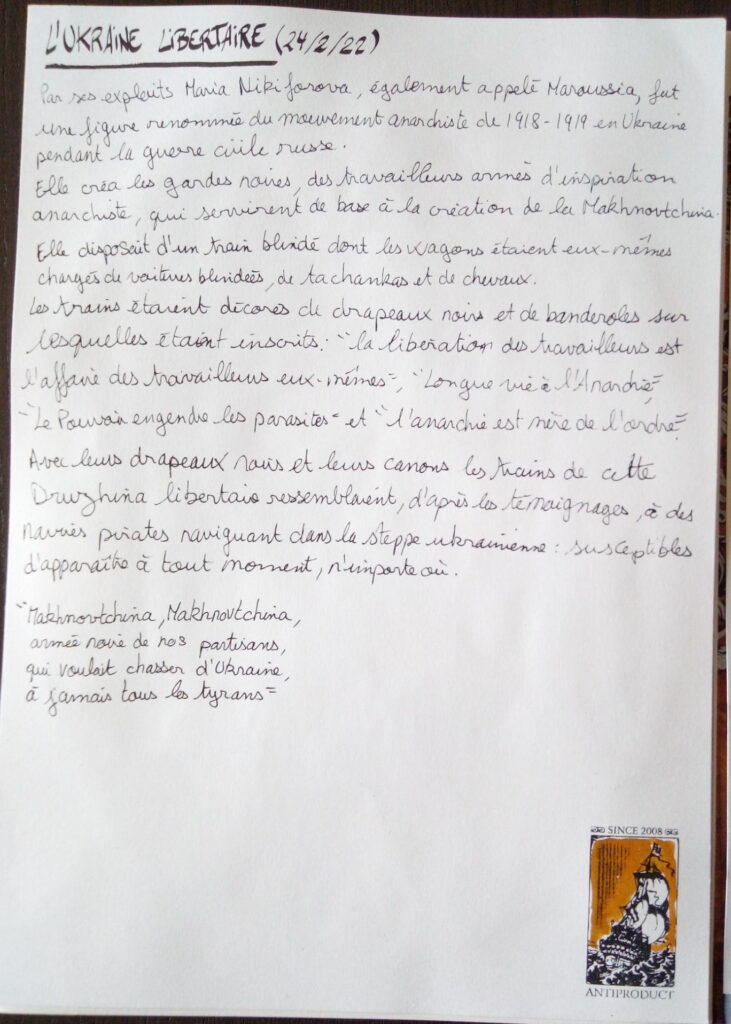 L'UKRAINE LIBERTAIRE (24/2/22)
Par ses exploits Maria Nikiforova, également appelé Maroussia, fut
une figure renommée du mouvement anarchiste de 1918-1919 en Ukraine
pendant la guerre civile russe.
Elle créa les gardes noires, des travailleurs armés d'inspiration
anarchiste, qui servirent de base à la création de la Makhnovtchina.
Elle disposait d'un train blindé dont les wagons étaient eux-mêmes
chargés de voitures blindées, de tachankas et de chevaux.
Les trains étaient décorés de drapeaux noirs et de banderoles sur
lesquelles étaient inscrits: "la libération des travailleurs est
l'affaire des travailleurs eux-mêmes", "Longue vie à l'Anarchie",
"Le Pouvoir engendre les parasites" et "l'anarchie est mère de l'ordre".
Avec leurs drapeaux noirs et leurs canons les trains de cette
Druzhina libertaire ressemblaient, d'après les témoignages, à des
navires pirates naviguant dans la steppe ukrainienne : susceptibles
d'apparaître à tout moment, n'importe où.
"Makhnovtchina, Makhnovtchina,
armée noire de nos partisans,
qui voulait chasser d'Ukraine,
à jamais tous les tyrans"
SINCE 2008
ANTIPRODUCT